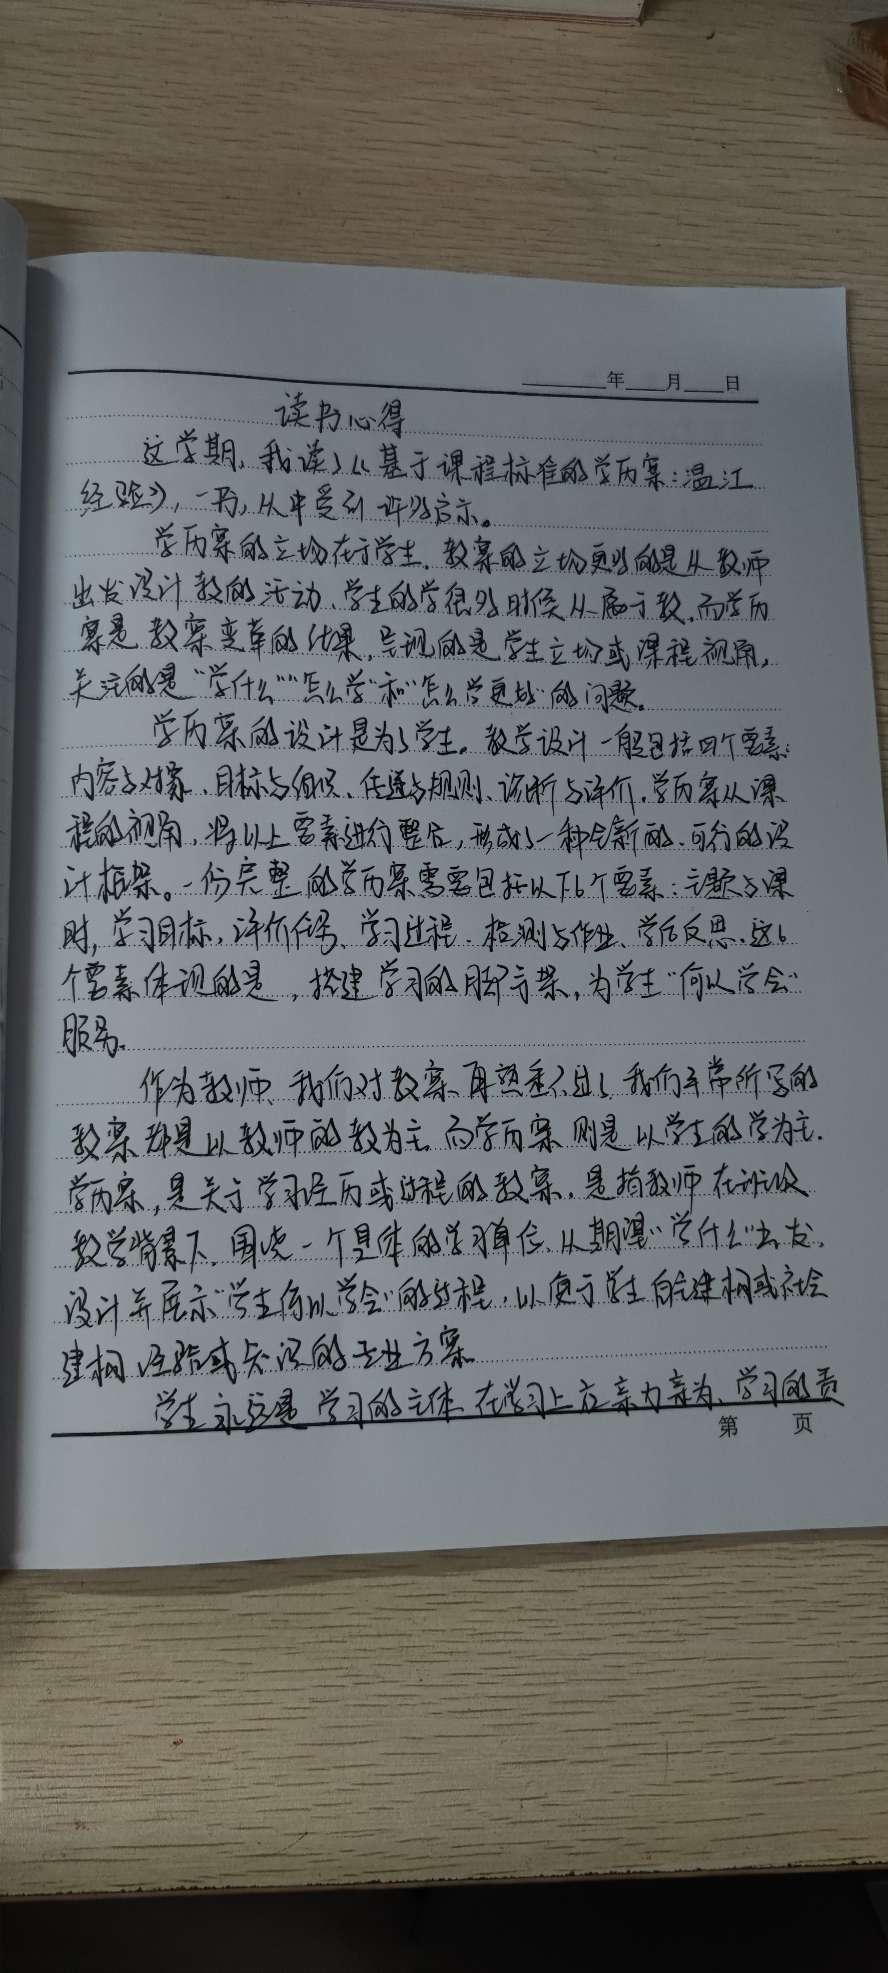 年 月 日
读书心得
这学期，我读了《基于课程标准的学历案：温江
经验》，一书，从中受到许多启示。
学历案的立场在于学生。教案的立场更多的是从教师
出发设计教的活动、学生的学很多时候从属于教，而学历
案是教案变革的结果，呈现的是学生立场或课程视角，
关注的是“学什么”“怎么学”和“怎么学更好”的问题。
学历案的设计是为了学生。教学设计一般包括四个要素：
内容与对象、目标与组织、任务与规则、诊断与评价，学历案从课
程的视角，将以上要素进行整合，形成了一种全新的、可行的设
计框架。一份完整的学历案需要包括以下6个要素：主题与课
时，学习目标，评价任务、学习过程、检测与作业、学后反思。这6
个要素体现的是，搭建学习的脚手架，为学生“何以学会”
服务。
作为教师、我们对教案再熟悉不过了，我们平常所写的
教案都是以教师的教为主，而学历案则是以学生的学为主.
学历案，是关于学习经历或过程的教案，是指教师在班级
教学背景下，围绕一个具体的学习单位、从期望“学什么”出发，
设计并展示“学生何以学会”的过程，以便于学生自主建构或社会
建构经验或知识的专业方案
学生永远是学习的主体、在学习上应亲力亲为、学习的责
第 页